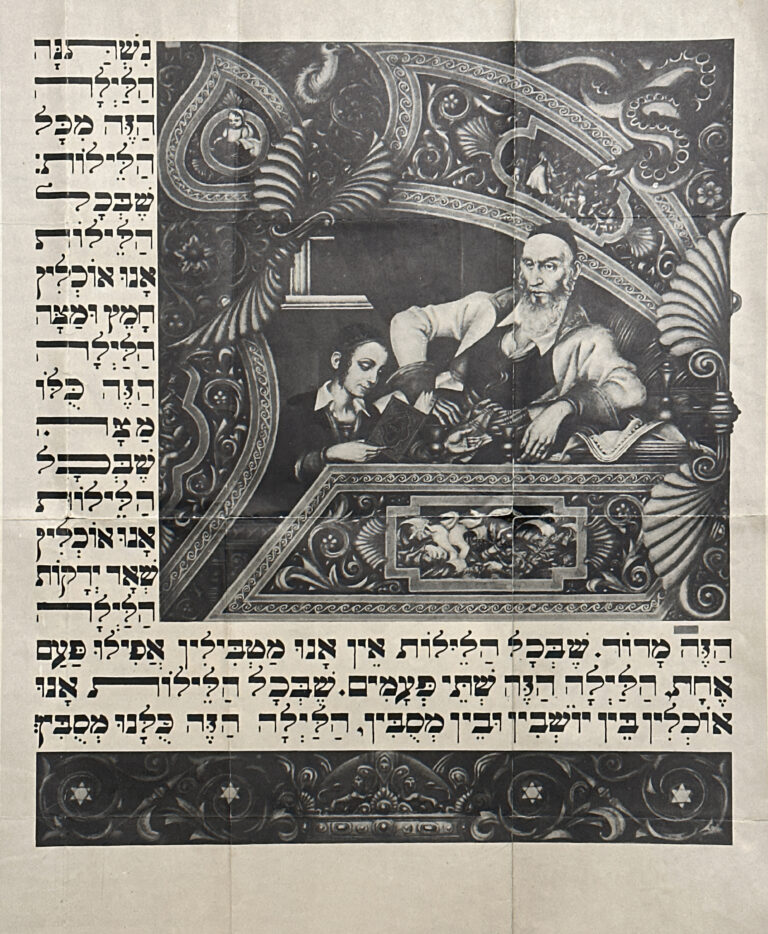 נִשְׁתַּנָּה
הַלַּיְלָה
הַזֶּה מִכָּל
הַלֵּילוֹת:
שֶׁבְּכָל
הַלֵּילוֹת
אָנוּ אוֹכְלִין
חָמֵץ וּמַצָּה
הַלַּיְלָה
הַזֶּה כֻּלּוֹ
מַצָּה.
שֶׁבְּכָל
הַלֵּילוֹת
אָנוּ אוֹכְלִין
שְׁאָר יְרָקוֹת
הַלַּיְלָה
הַזֶּה מָרוֹר. שֶׁבְּכָל הַלֵּילוֹת אֵין אָנוּ מַטְבִּילִין אֲפִילוּ פַּעַם
אֶחָת, הַלַּיְלָה הַזֶּה שְׁתֵּי פְּעָמִים. שֶׁבְּכָל הַלֵּילוֹת אָנוּ
אוֹכְלִין בֵּין יוֹשְׁבִין וּבֵין מְסֻבִּין, הַלַּיְלָה הַזֶּה כֻּלָּנוּ מְסֻבִּין: